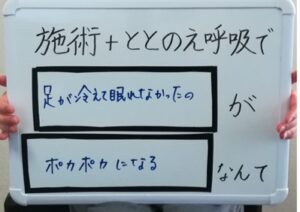 施術+ととのえ呼吸で
足が冷えて眠れなかったの
が
ポカポカになる
なんて